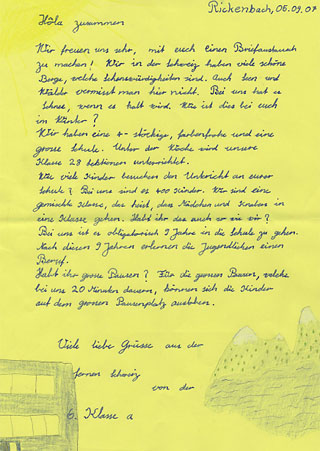 Rickenbach, 05.09.07
Hôla zusammen
Wir freuen uns sehr, mit euch einen Briefaustausch
zu machen! Wir in der Schweiz haben viele schöne
Berge, welche Sehenswürdigkeiten sind. Auch Seen und
Wälder vermisst man hier nicht. Bei uns hat es
Schnee, wenn es kalt wird. Wie ist dies bei euch
im Winter?
Wir haben eine 4-stöckige, farbenfrohe und eine
grosse Schule. Unter der Woche wird unsere
Klasse 28 Lektionen unterrichtet.
Wie viele Kinder besuchen den Unterricht an eurer
Schule? Bei uns sind es 400 Kinder. Wir sind eine
gemischte Klasse, das heist, dass Mädchen und Knaben in
eine Klasse gehen. Habt ihr das auch so wie wir?
Bei uns ist es obligatorisch 9 Jahre in die Schule zu gehen.
Nach diesen 9 Jahren erlernen die Jugendlichen einen
Beruf.
Habt ihr grosse Pausen? Für die grossen Pausen, welche
bei uns 20 Minuten dauern, können sich die Kinder
auf dem grossen Pausenplatz austoben.
Viele liebe Grüsse aus der
fernen Schweiz
von der
6. Klasse a